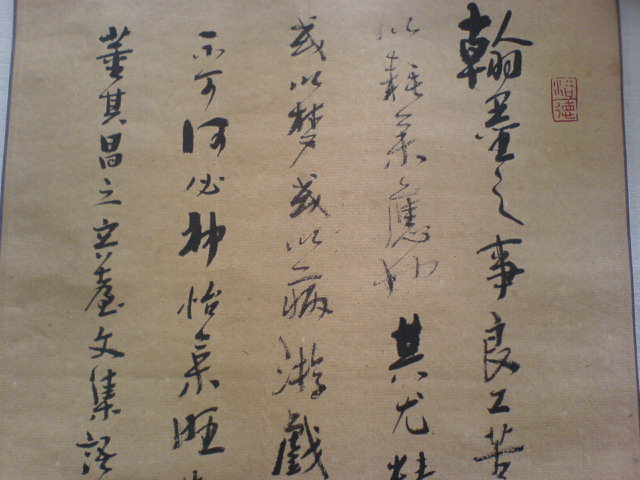 翰墨之事良工苦
以耗氣應也其尤精
或以夢或以病游戲
不可何必神怡氣旺
董其昌之容臺文集語